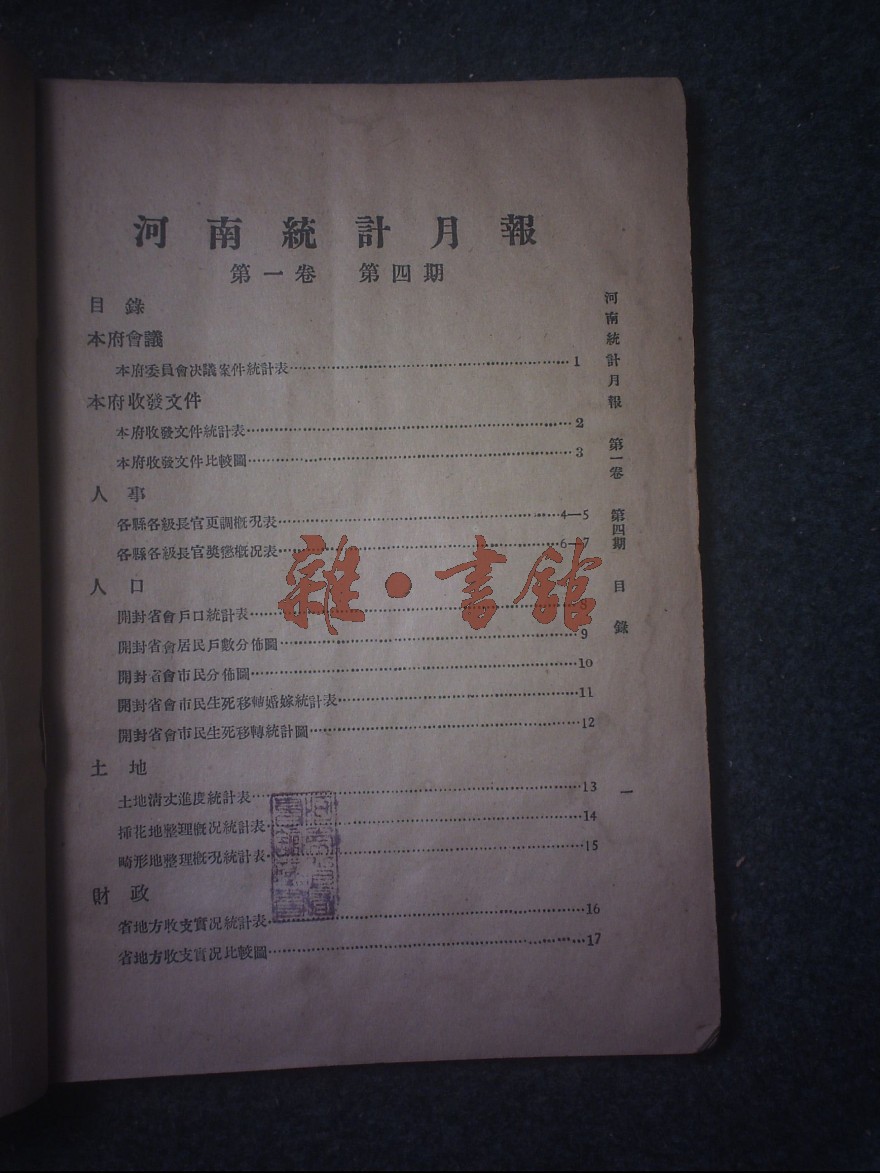 河南統計月報
第一卷 第四期
目錄
本府會議
本府委員會決議案件統計表……1
本府收發文件
本府收發文件統計表……2
本府收發文件比較圖……3
人事
各縣各級長官更調概況表……4—5
各縣各級長官獎懲概況表……6—7
人口
開封省會戶口統計表……8
開封省會居民戶數分佈圖……9
開封省會市民分佈圖……10
開封省會市民生死移轉婚嫁統計表……11
開封省會市民生死移轉統計圖……12
土地
土地清丈進度統計表……13
插花地整理概況統計表……14
畸形地整理概況統計表……15
財政
省地方收支實况統計表……16
省地方收支實况比較圖……17
河南統計月報 第一卷 第四期 目錄
一
雜·書館